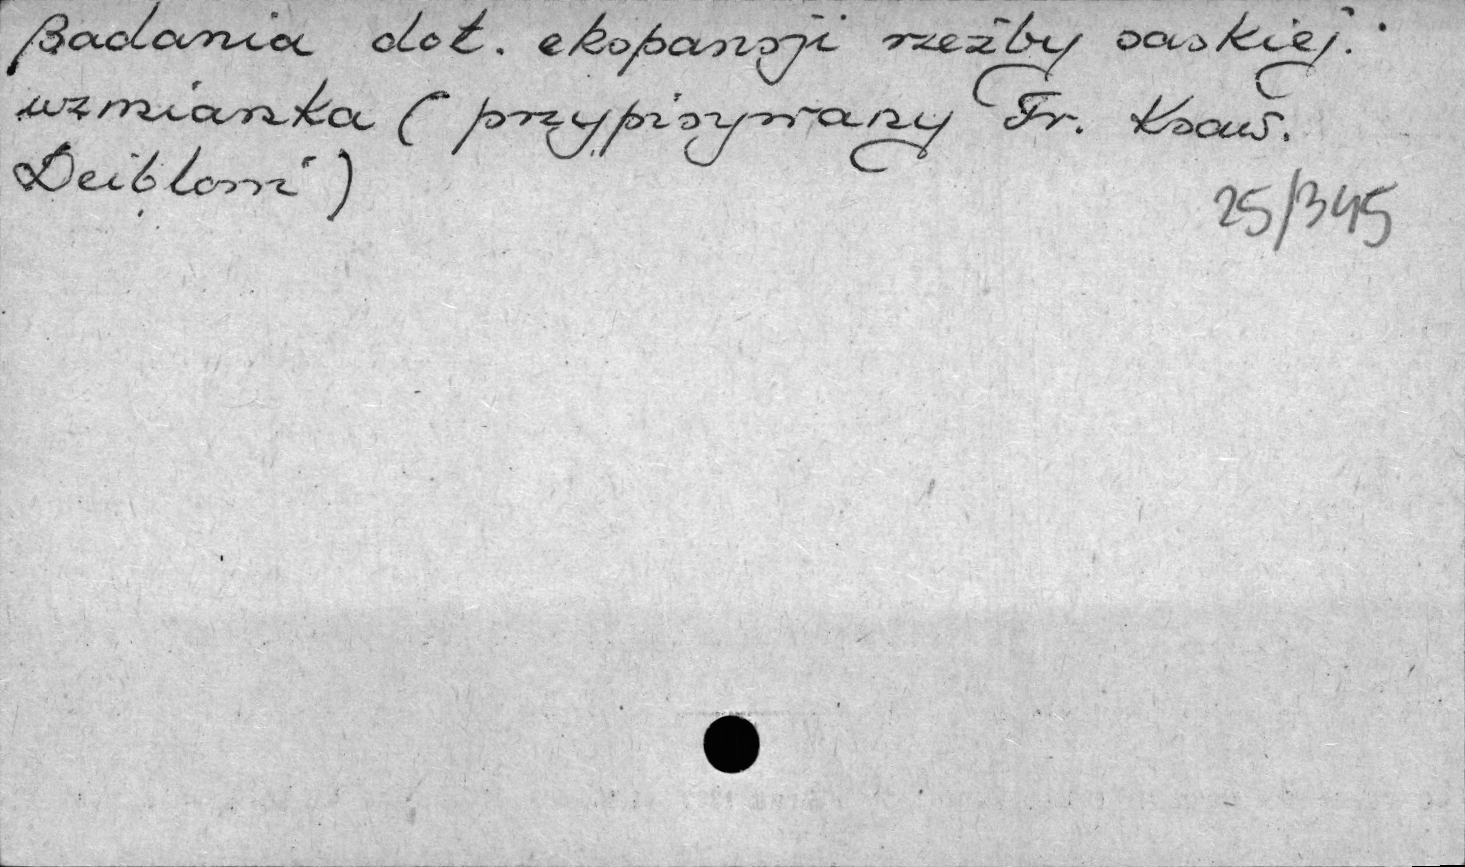 Badania dot. ekspansji rzeźby saskiej.
wzmianka (przypisywany Fr. Ksaw.
Deiblowi)
25/345